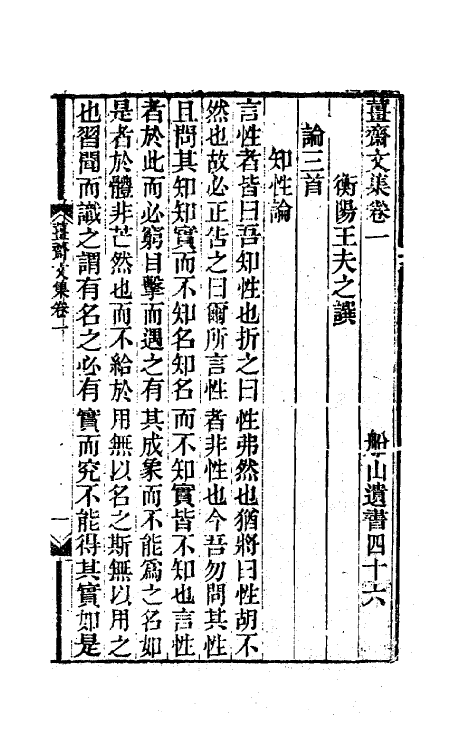 薑齋文集卷一　船山遺書四十六
衡陽王夫之譔
論三首
知性論
言性者皆曰吾知性也折之曰性弗然也猶將曰性胡不
然也故必正告之曰爾所言性者非性也今吾勿問其性
且問其知知實而不知名知名而不知實皆不知也言性
者於此而必窮目擊而遇之有其成象而不能爲之名如
是者於體非芒然也而不給於用無以名之斯無以用之
也習聞而識之謂有名之必有實而究不能得其實如是
薑齋文集卷一
一